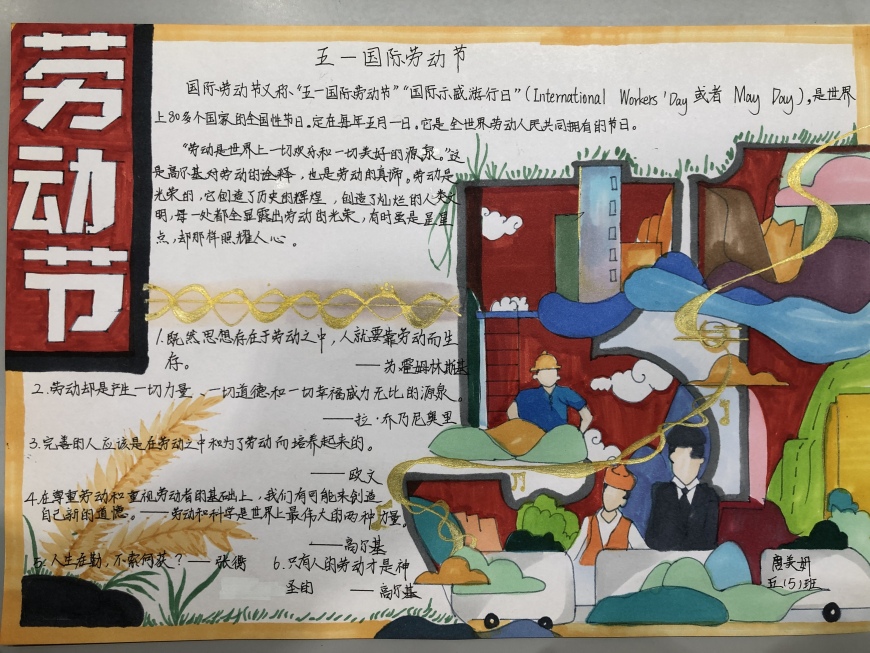 劳动节
五一国际劳动节
国际劳动节又称“五一国际劳动节”“国际示威游行日”(International Workers' Day 或者 May Day),是世界
上80多个国家的全国性节日。定在每年五月一日。它是全世界劳动人民共同拥有的节日。
“劳动是世界上一切欢乐和一切美好的源泉。”这
是高尔基对劳动的诠释,也是劳动的真谛。劳动是
光荣的,它创造了历史的辉煌,创造了灿烂的人类文
明,每一处都全显露出劳动的光荣,有时虽是星星
点,却那样照耀人心。
1.既然思想存在于劳动之中,人就要靠劳动而生
存。
——苏霍姆林斯基
2.劳动却是产生一切力量、一切道德和一切幸福威力无比的源泉。
——拉·乔乃尼奥里
3.完善的人应该是在劳动之中和为了劳动而培养起来的。
——欧文
4.在尊重劳动和重视劳动者的基础上,我们有可能来创造
自己新的道德。——劳动和科学是世界上最伟大的两种力量。
——高尔基
5.人生在勤,不索何获?——张衡
6.只有人的劳动才是神
圣的 ——高尔基
五(5)班